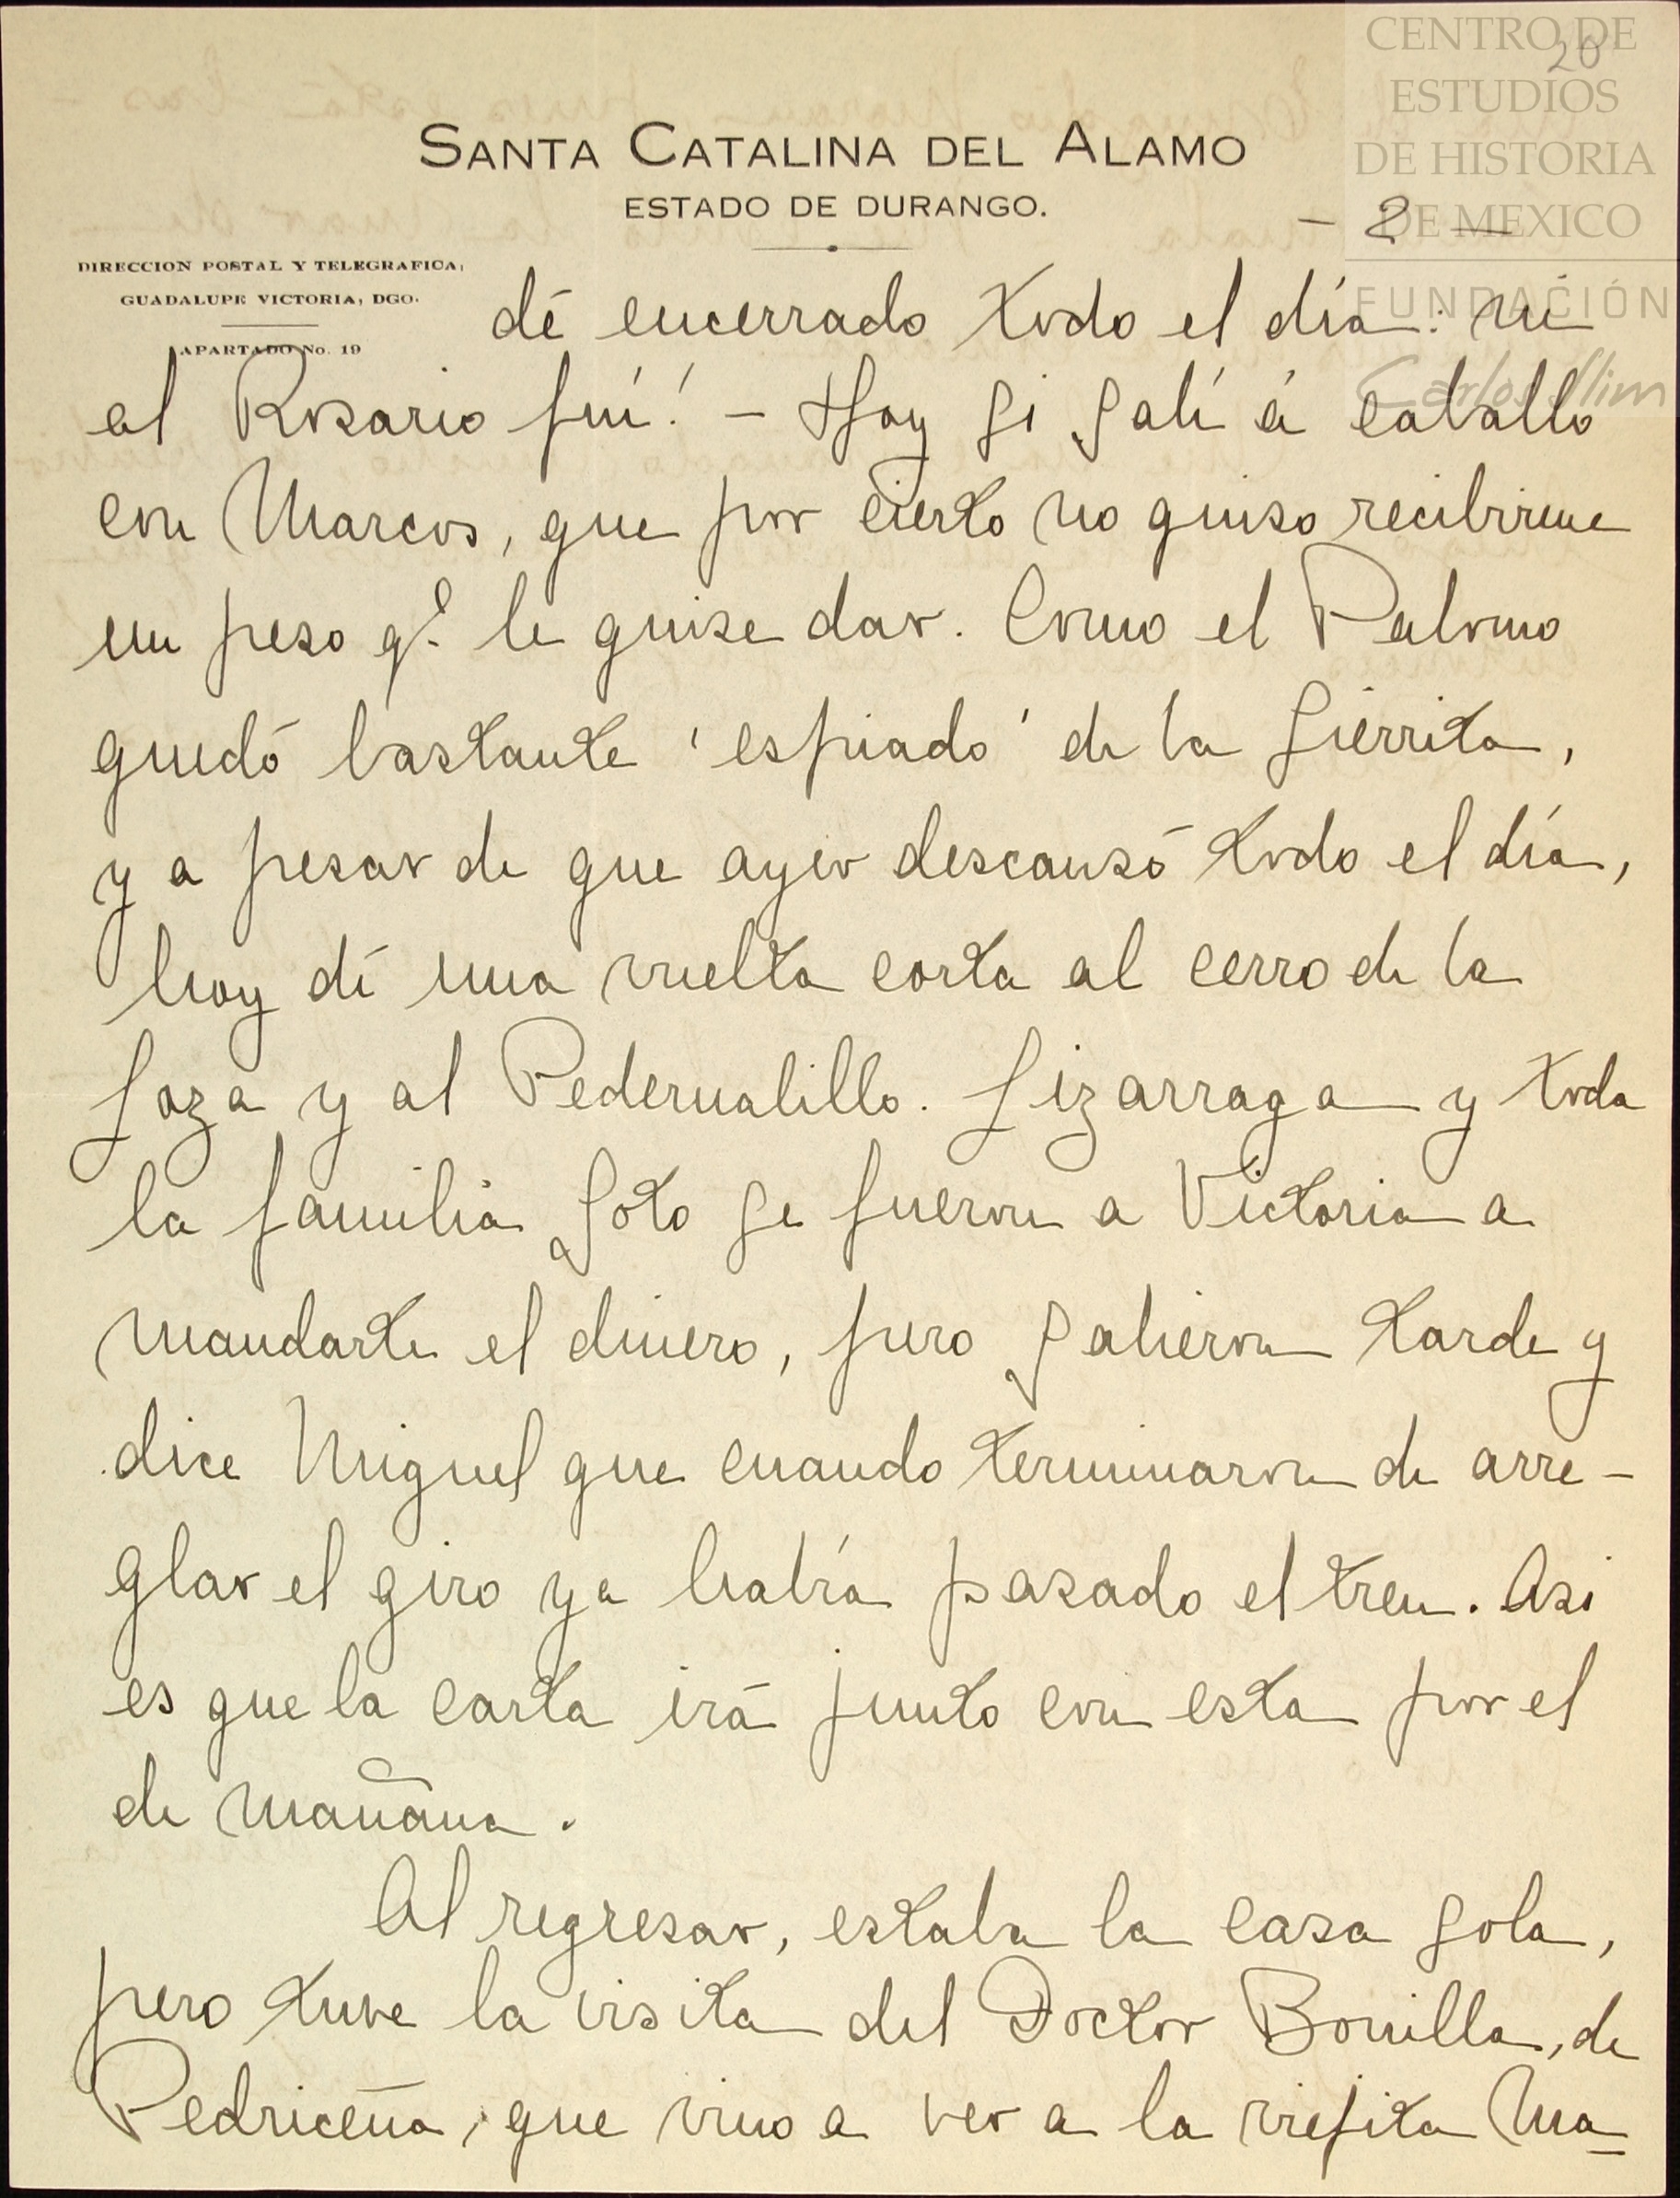 CENTRO DE
ESTUDIOS
DE HISTORIA
DE MEXICO
FUNDACIÓN
Carlos Slim
20
SANTA CATALINA DEL ALAMO
ESTADO DE DURANGO.
- 2 -
DIRECCION POSTAL Y TELEGRAFICA,
GUADALUPE VICTORIA, DGO.
APARTADO No. 19
dé encerrado todo el día: ni
al Rosario fuí! - Hoy si salí á caballo
con Marcos, que por cierto no quiso recibirme
un peso q.e le quise dar. Como el Palomo
quedó bastante 'espiado' de la sierrita,
y a pesar de que ayer descansó todo el día,
hoy dí una vuelta corta al cerro de la
Loza y al Pedernalillo. Lizarraga y toda
la familia Soto se fueron a Victoria a
mandarte el dinero, pero salieron tarde y
dice Miguel que cuando terminaron de arre-
glar el giro ya habia pasado el tren. Asi
es que la carta irá junto con esta por el
de mañana.
Al regresar, estaba la casa sola,
pero tuve la visita del Doctor Bonilla, de
Pedriceña, que vino a ver a la viejita Ma